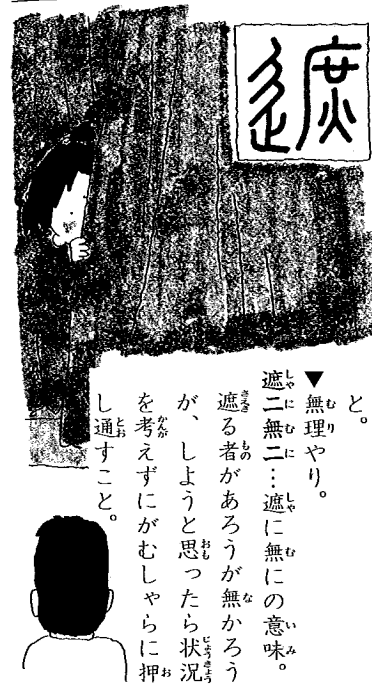 遮
と。
▼無理やり。
遮二無二…遮に無にの意味。
遮る者があろうが無かろう
が、しようと思ったら状況
を考えずにがむしゃらに押
し通すこと。